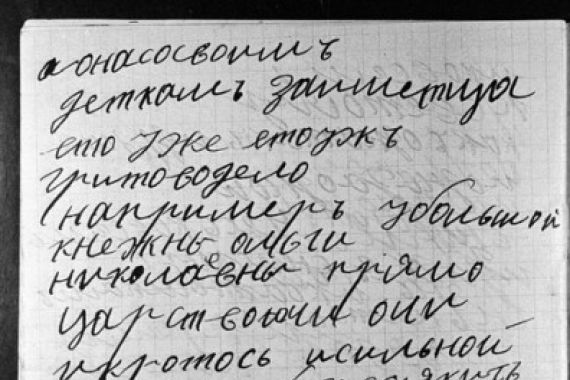 а онасосвоимъ
деткамъ запметца
ето уже етоужъ
гритоводело
(например ъ убольшой
кнежны ольги
николаевны прямо
царствоючи они
икротось исильной